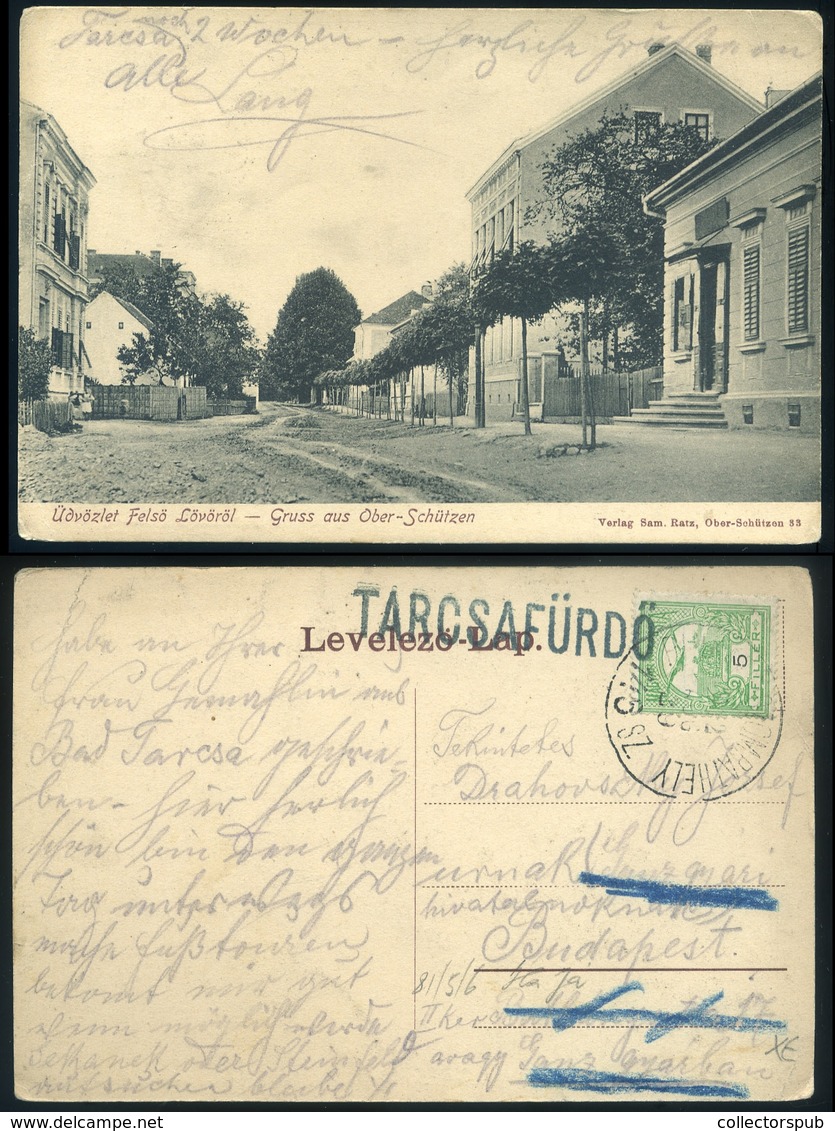 noch
Tarcsa 2 Wochen – herzliche Grüsse an
alle
Lang
Üdvözlet Felső Lövőről — Gruss aus Ober-Schützen
Verlag Sam. Ratz, Ober-Schützen 33
TARCSAFÜRDŐ
Levelező-Lap.
5
FILLER
ZS
habe an Ihrer
frau Gemahlin aus
Bad Tarcsa geschrie-
ben – hier herlich
schön bin den ganzen
Tag unterwegs
mache Fußtouren
bekomt mir gut
wenn möglich werde
oder Steinfeld
aufsuchen bleibe
Tekintetes
Drahovszky József
urnak Ganz gyári
hivatalnoknak
Budapest.
81/5/6
II ker
17
avagy Ganz gyárban
XE
collectorspub